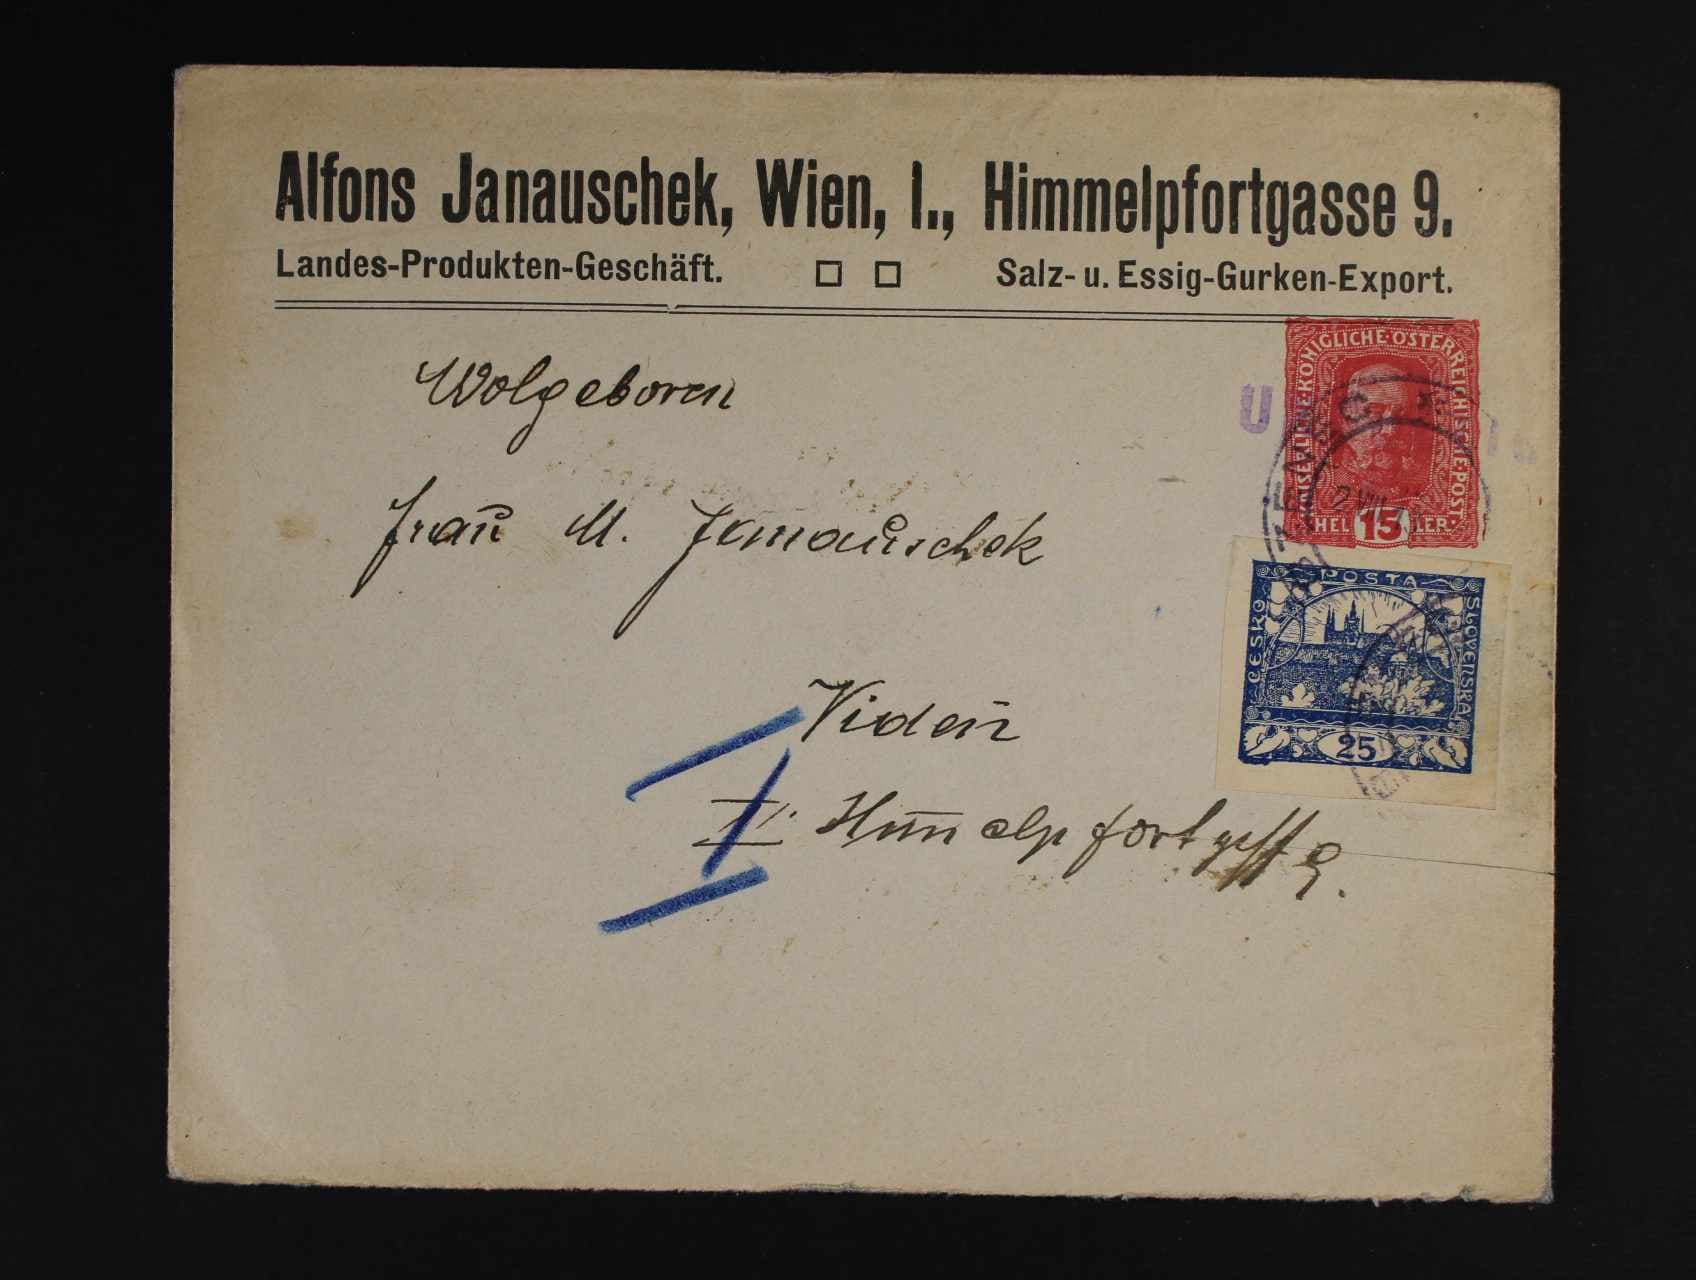 Alfons Janauschek, Wien, I., Himmelpfortgasse 9.
Landes-Produkten-Geschäft. Salz- u. Essig-Gurken-Export.
KAISERLICHE·KÖNIGLICHE·ÖSTERREICHISCHE·POST
HELLER
15
U
Wolgeboren
Frau M. Janauschek
POSTA
ČESKO
SLOVENSKÁ
25
Videň
Himmelpfortgasse 9.